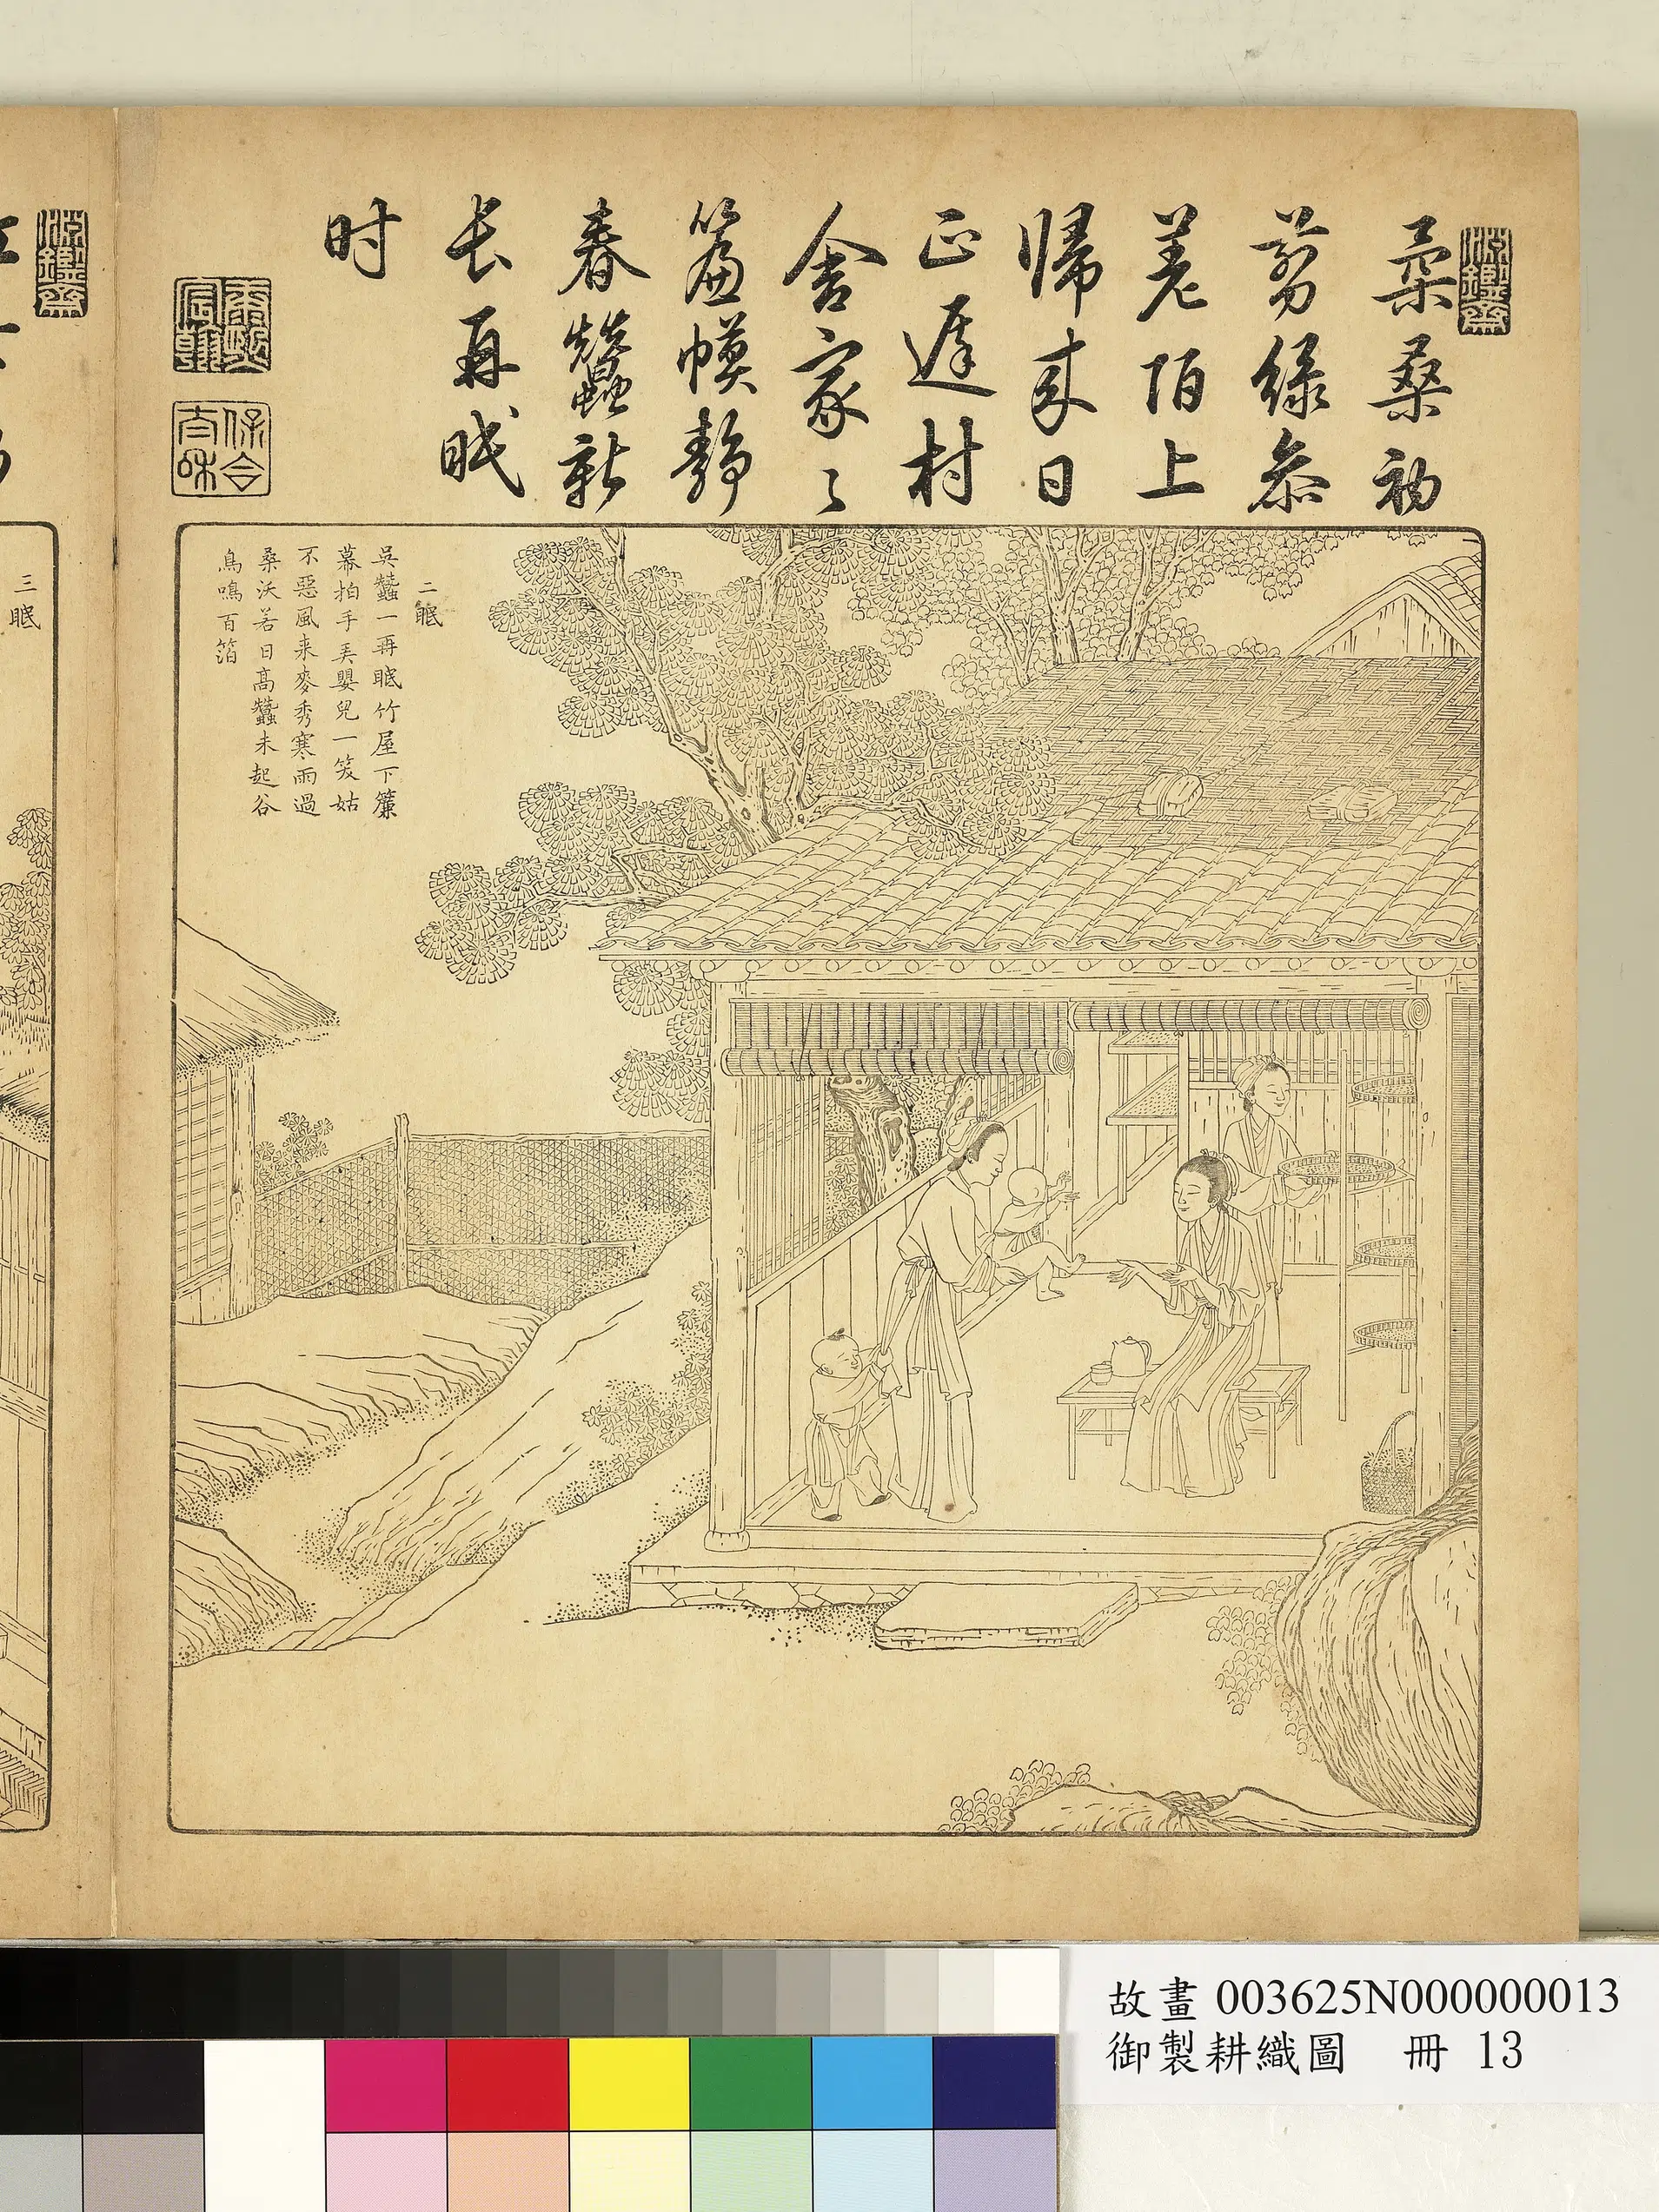 淵鑒齋
柔桑初
翦綠叅
差陌上
歸来日
正遲村
舍家〻
簾幙靜
春蠶新
长再眠
时
康熙宸翰
保合太和
二眠
吳蠶一再眠竹屋下簾
幕拍手弄嬰兒一笑姑
不惡風来麥秀寒雨過
桑沃若日高蠶未起谷
鳥鳴百箔
淵鑒齋
三眠
故畫 003625N000000013
御製耕織圖 冊 13